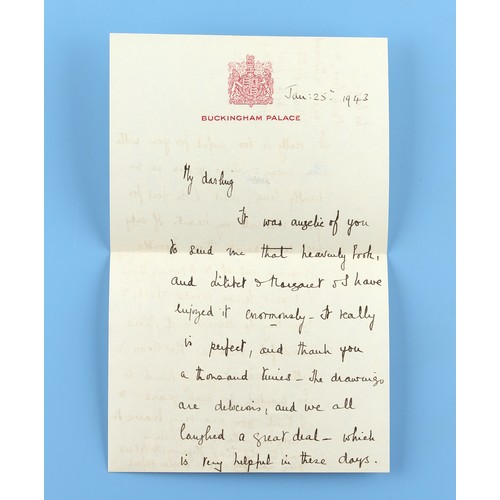 Jan: 25th 1943
BUCKINGHAM PALACE
My darling
It was angelic of you
to send me that heavenly book,
and Lilibet & Margaret & I have
enjoyed it enormously - It really
is perfect, and thank you
a thousand times - The drawings
are delicious, and we all
laughed a great deal - which
is very helpful in these days.